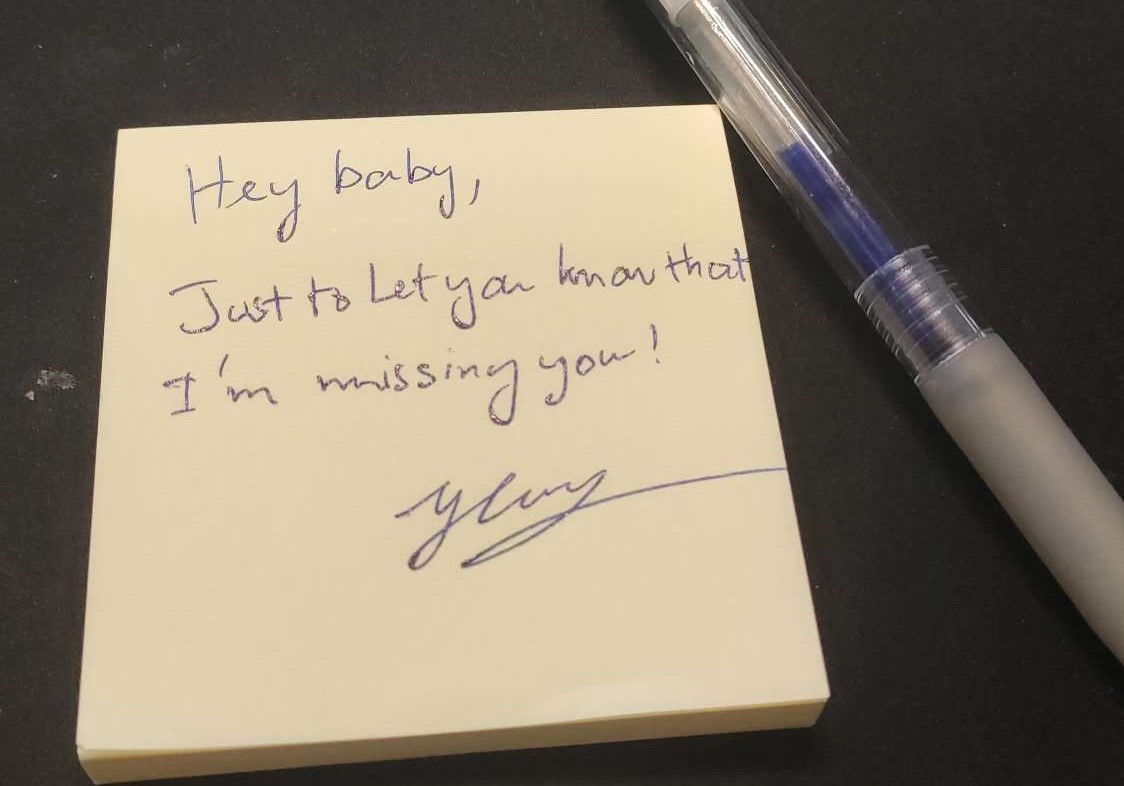 Hey baby,
Just to Let you know that
I'm missing you!